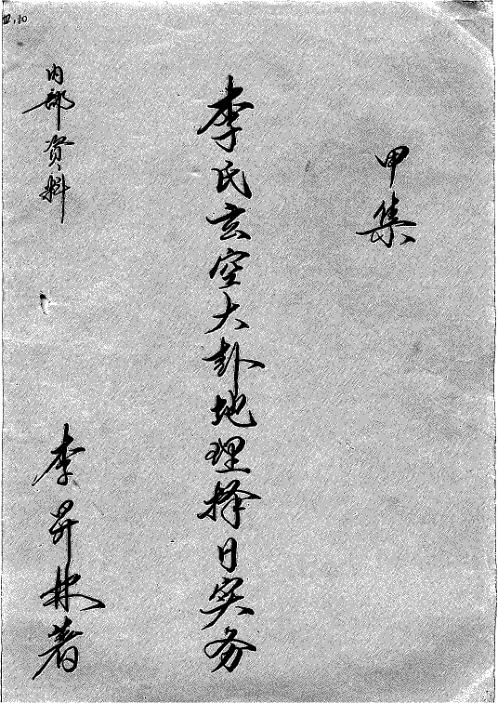 甲集
李氏玄空大卦地理择日实务
内部资料
李昇林著